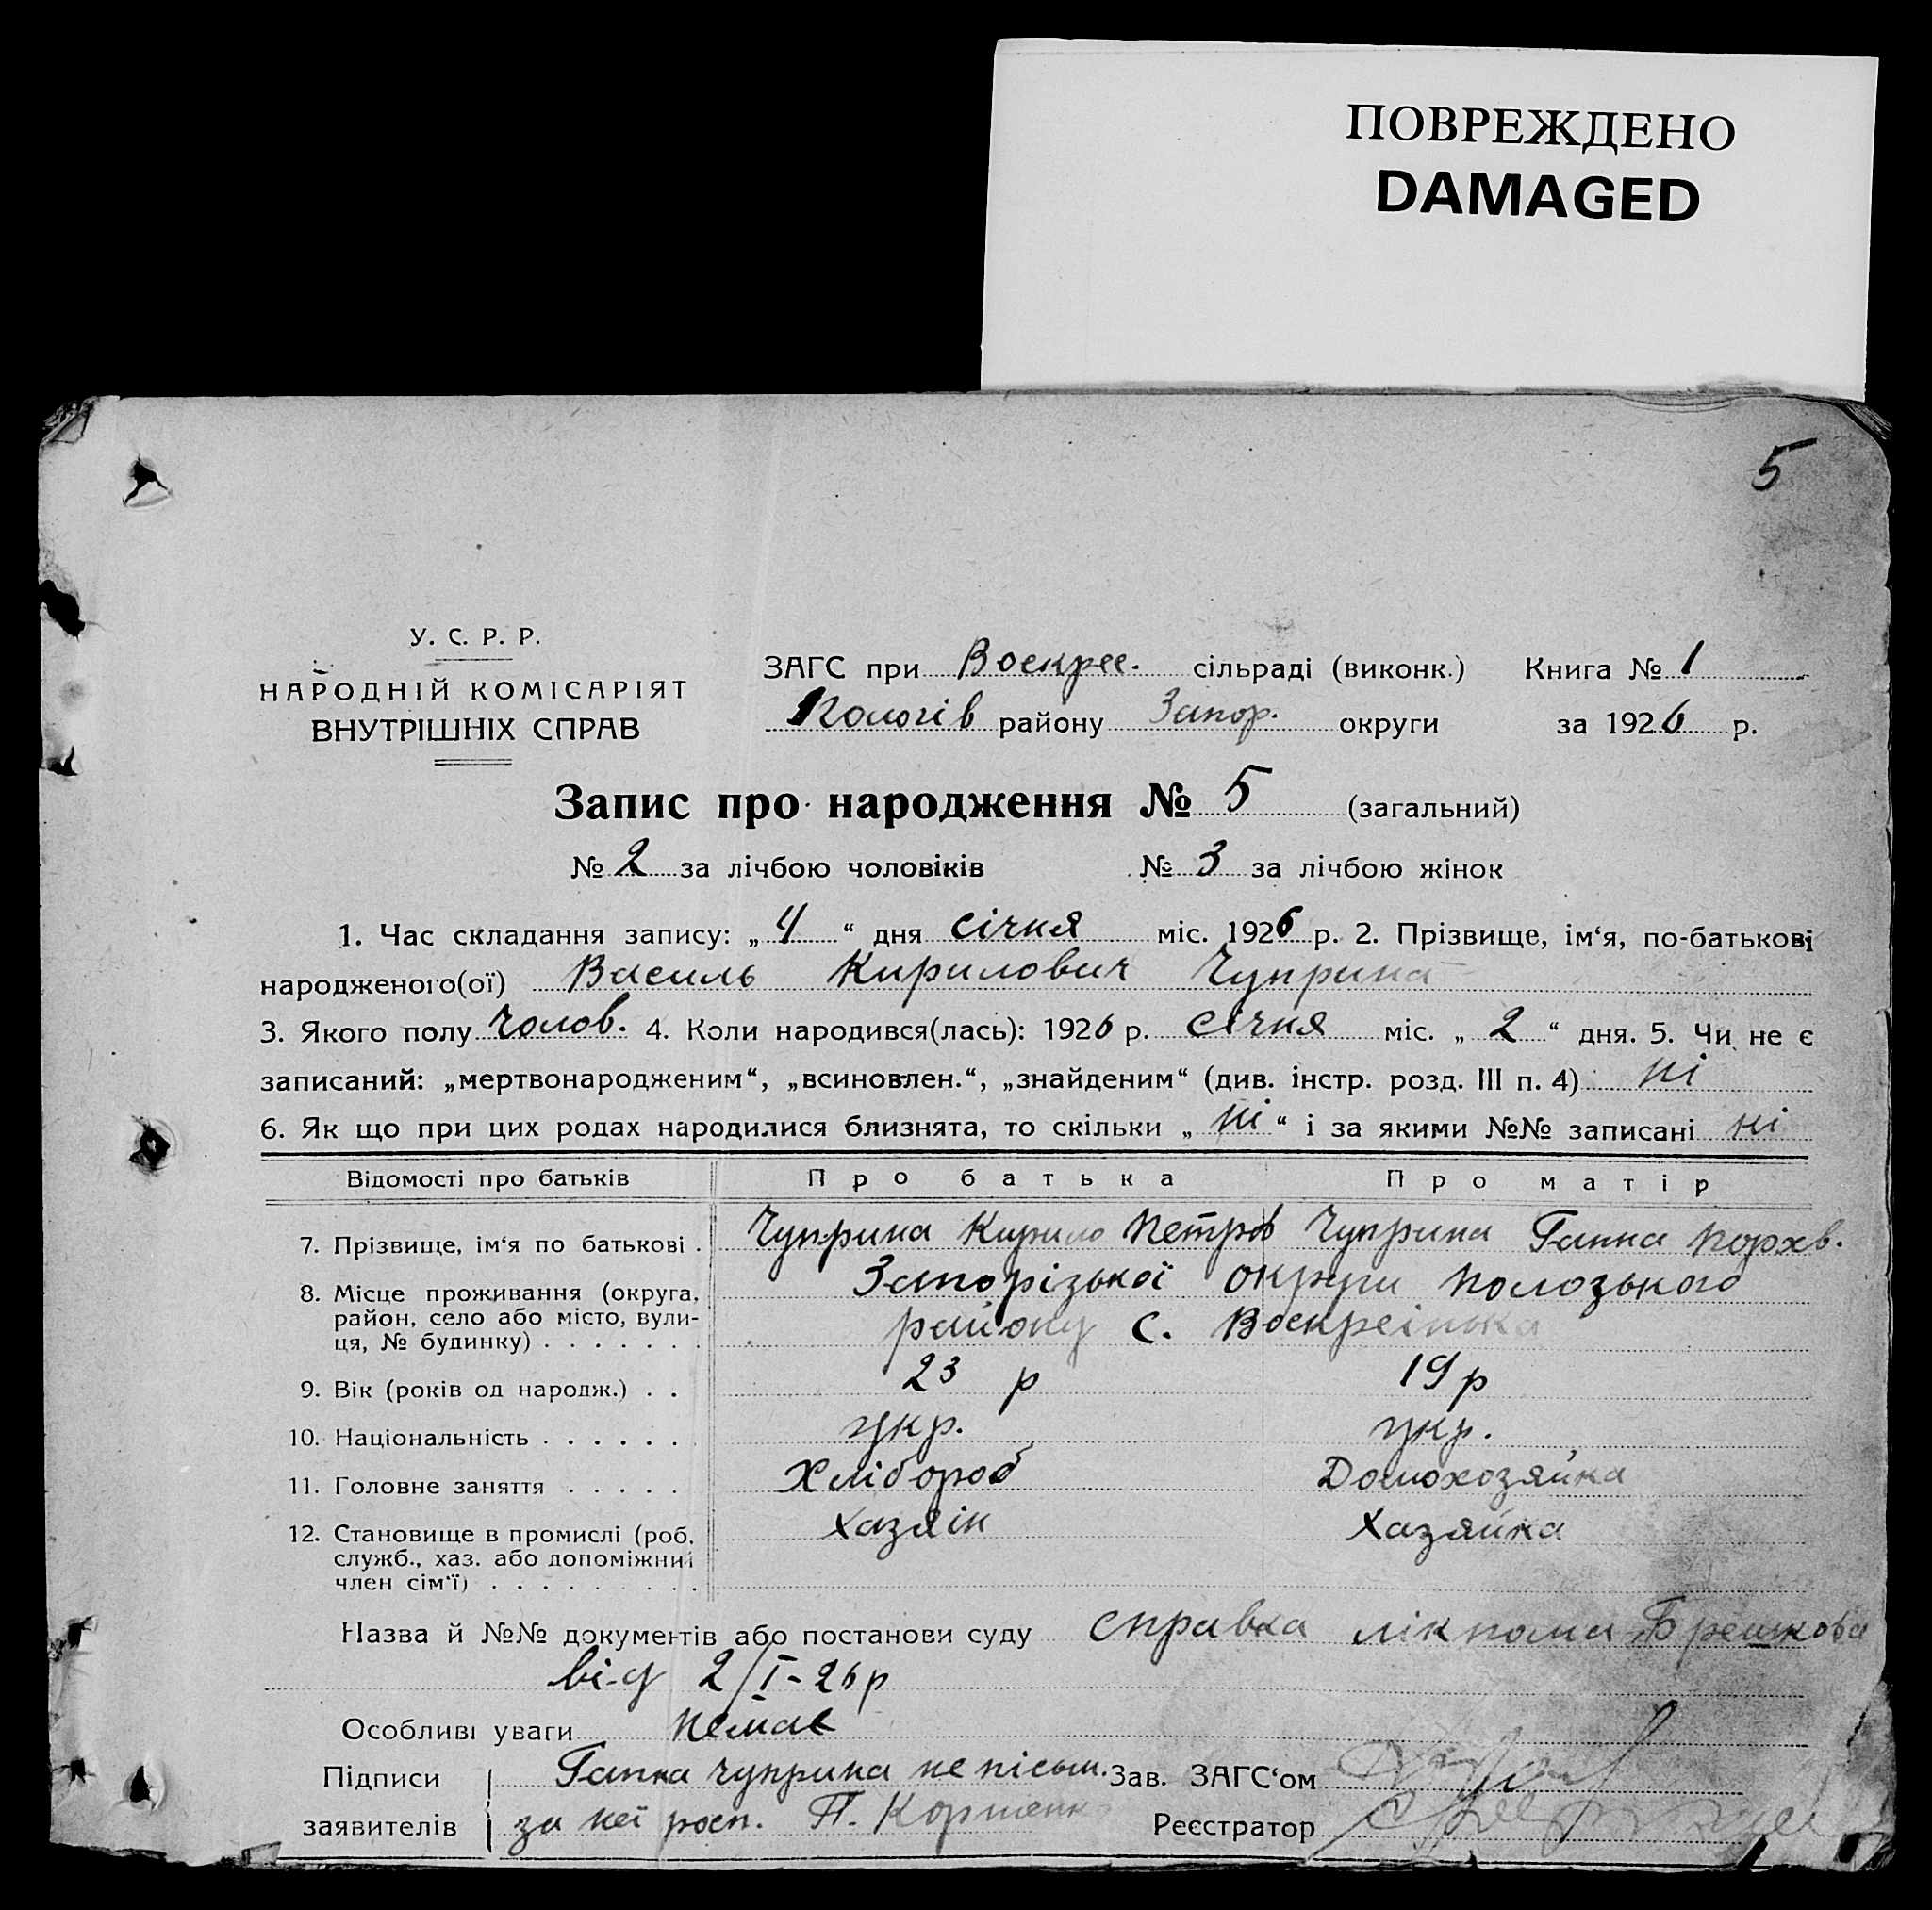 ПОВРЕЖДЕНО
DAMAGED
5
У. С. Р. Р.
НАРОДНІЙ КОМІСАРІЯТ
ВНУТРІШНІХ СПРАВ
ЗАГС при Воскрес. сільраді (виконк.) Книга № 1
Пологів району Запор. округи за 1926 р.
Запис про народження № 5 (загальний)
№ 2 за лічбою чоловіків № 3 за лічбою жінок
1. Час складання запису: „4“ дня січня міс. 1926 р. 2. Прізвище, ім‘я, по-батькові
народженого(ої) Василь Кирилович Чуприна
3. Якого полу Чолов. 4. Коли народився(лась): 1926 р. січня міс. „2“ дня. 5. Чи не є
записаний: „мертвонародженим“, „всиновлен.“, „знайденим“ (див. інстр. розд. III п. 4) ні
6. Як що при цих родах народилися близнята, то скільки „ні“ і за якими №№ записані ні
Відомості про батьків Про батька Про матір
7. Прізвище, ім‘я по батькові . Чуприна Кирило Петров Чуприна Ганна Порхв.
8. Місце проживання (округа, Запорізької округи Полозького
район, село або місто, вули- району с. Воскресінька
ця, № будинку) . . . . . . .
9. Вік (років од народж.) . . 23 р 19 р
10. Національність . . . . . . укр. укр.
11. Головне заняття . . . . . Хлібороб Домохозяйка
12. Становище в промислі (роб. Хазяїн Хазяйка
служб., хаз. або допоміжний
член сім‘ї) . . . . . . . . .
Назва й №№ документів або постанови суду справка лікпома Брешкова
від 2/I-26р
Особливі уваги немає
Підписи Ганна Чуприна не пісьм. Зав. ЗАГС‘ом
заявителів за неї росп. П. Коршенко Реєстратор